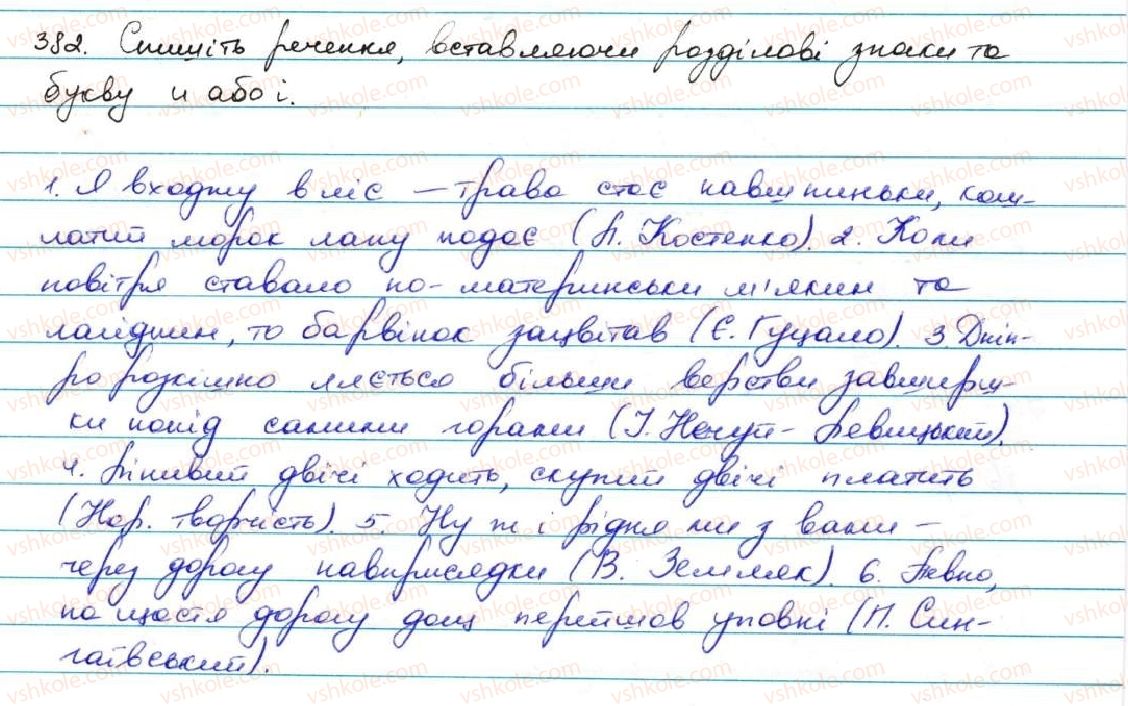 382. Спишіть речення, вставляючи розділові знаки та
букву и або і.
1. Я входжу в ліс – трава стає навшпиньки, кош-
латий морок лапу подає (Л. Костенко). 2. Коли
повітря ставало по-материнськи м'яким та
лагідним, то барвінок зацвітав (Є. Гуцало). 3. Дніп-
ро розкішно ллється більш верстви завширш-
ки попід самими горами (І. Нечуй-Левицький).
4. Лінивий двічі ходить, скупий двічі платить
(Нар. творчість). 5. Ну ж і рідня ми з вами –
через дорогу навприсядки (В. Земляк). 6. Певно,
на щастя дорогу дощ перейшов уповні (П. Син-
гаївський).
vshkole.com